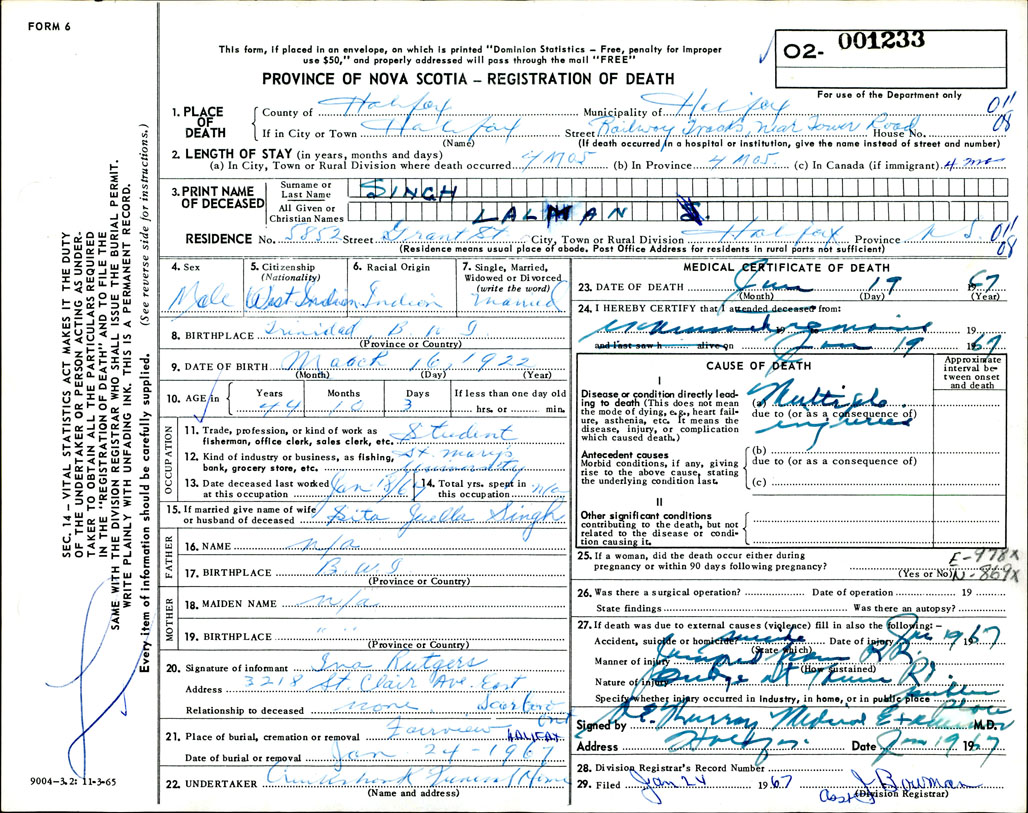 FORM 6
This form, if placed in an envelope, on which is printed "Dominion Statistics – Free, penalty for improper
use $50," and properly addressed will pass through the mail "FREE"
O2- 001233
For use of the Department only
PROVINCE OF NOVA SCOTIA – REGISTRATION OF DEATH
SEC. 14 – VITAL STATISTICS ACT MAKES IT THE DUTY
OF THE UNDERTAKER OR PERSON ACTING AS UNDER-
TAKER TO OBTAIN ALL THE PARTICULARS REQUIRED
IN THE "REGISTRATION OF DEATH" AND TO FILE THE
SAME WITH THE DIVISION REGISTRAR WHO SHALL ISSUE THE BURIAL PERMIT.
WRITE PLAINLY WITH UNFADING INK. THIS IS A PERMANENT RECORD.
Every item of information should be carefully supplied. (See reverse side for instructions.)
1. PLACE OF DEATH
County of Halifax Municipality of Halifax 011
If in City or Town Halifax Street Railway Tracks, near Tower Road House No. 08
(Name) (If death occurred in a hospital or institution, give the name instead of street and number)
2. LENGTH OF STAY (in years, months and days)
(a) In City, Town or Rural Division where death occurred 4 Mos (b) In Province 4 Mos (c) In Canada (if immigrant) 4 mos
3. PRINT NAME OF DECEASED
Surname or Last Name SINGH
All Given or Christian Names LALMAN
RESIDENCE No. 5852 Street Grant St City, Town or Rural Division Halifax Province N.S. 011
(Residence means usual place of abode. Post Office Address for residents in rural parts not sufficient) 08
4. Sex Male
5. Citizenship (Nationality) West Indian
6. Racial Origin Indian
7. Single, Married, Widowed or Divorced (write the word) Married
8. BIRTHPLACE Trinidad B W I
(Province or Country)
9. DATE OF BIRTH March 16, 1922
(Month) (Day) (Year)
10. AGE in Years 44 Months 10 Days 3 If less than one day old hrs. or min.
OCCUPATION
11. Trade, profession, or kind of work as fisherman, office clerk, sales clerk, etc. Student
12. Kind of industry or business, as fishing, bank, grocery store, etc. St. Mary's University
13. Date deceased last worked at this occupation Jan 18/67 14. Total yrs. spent in this occupation n/a
15. If married give name of wife or husband of deceased Sita Singh
FATHER
16. NAME n/a
17. BIRTHPLACE B.W.I
(Province or Country)
MOTHER
18. MAIDEN NAME n/a
19. BIRTHPLACE " "
(Province or Country)
20. Signature of informant Ina Rutgers
Address 3218 St. Clair Ave. East
Relationship to deceased none Ont
21. Place of burial, cremation or removal Fairview HALIFAX
Date of burial or removal Jan 24 - 1967
22. UNDERTAKER Cruikshank Funeral Home
(Name and address)
9004–3.2: 11-3-65
MEDICAL CERTIFICATE OF DEATH
23. DATE OF DEATH Jan 19 1967
(Month) (Day) (Year)
24. I HEREBY CERTIFY that I attended deceased from:
19 19
and last saw h alive on Jan 19 1967
CAUSE OF DEATH
Approximate interval between onset and death
I
Disease or condition directly leading to death (This does not mean the mode of dying, e.g., heart failure, asthenia, etc. It means the disease, injury, or complication which caused death.)
(a) Multiple
due to (or as a consequence of)
injuries
Antecedent causes
Morbid conditions, if any, giving rise to the above cause, stating the underlying condition last.
(b)
due to (or as a consequence of)
(c)
II
Other significant conditions contributing to the death, but not related to the disease or condition causing it.
25. If a woman, did the death occur either during pregnancy or within 90 days following pregnancy? (Yes or No)
E-978x
N-869x
26. Was there a surgical operation? Date of operation 19
State findings Was there an autopsy?
27. If death was due to external causes (violence) fill in also the following: –
Accident, suicide or homicide? suicide Date of injury Jan 19 1967
(State which)
Manner of injury Jumped from R.R.
(How sustained)
Nature of injury
Specify whether injury occurred in industry, in home, or in public place Public Place
Signed by Murray Medical Examiner M.D.
Address Halifax Date Jan 19 1967
28. Division Registrar's Record Number
29. Filed Jan 24 1967 J Bowman
(Division Registrar)